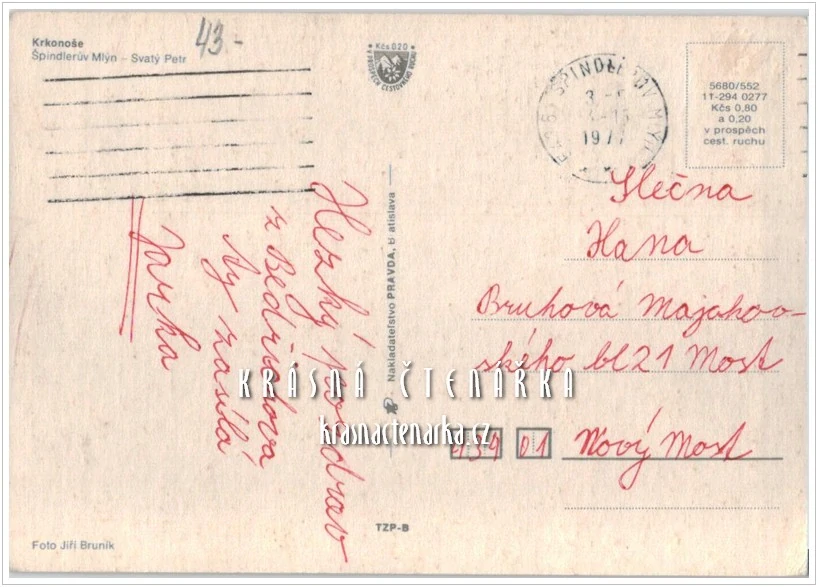 Krkonoše
Špindlerův Mlýn – Svatý Petr
43.-
Kčs 0.20
V PROSPĚCH CESTOVNÍHO RUCHU
ŠPINDLERŮV MLÝN
1977
5680/552
11-294 0277
Kčs 0,80
a 0,20
v prospěch
cest. ruchu
Hezký pozdrav
z Bedřichova
Ay zasílá
Jarka
Nakladateľstvo PRAVDA, Bratislava
Slečna
Hana
Bruhová Majakov-
ského bl 21 Most
434 01 Nový Most
KRÁSNÁ ČTENÁŘKA
krasnactenarka.cz
TZP-B
Foto Jiří Bruník